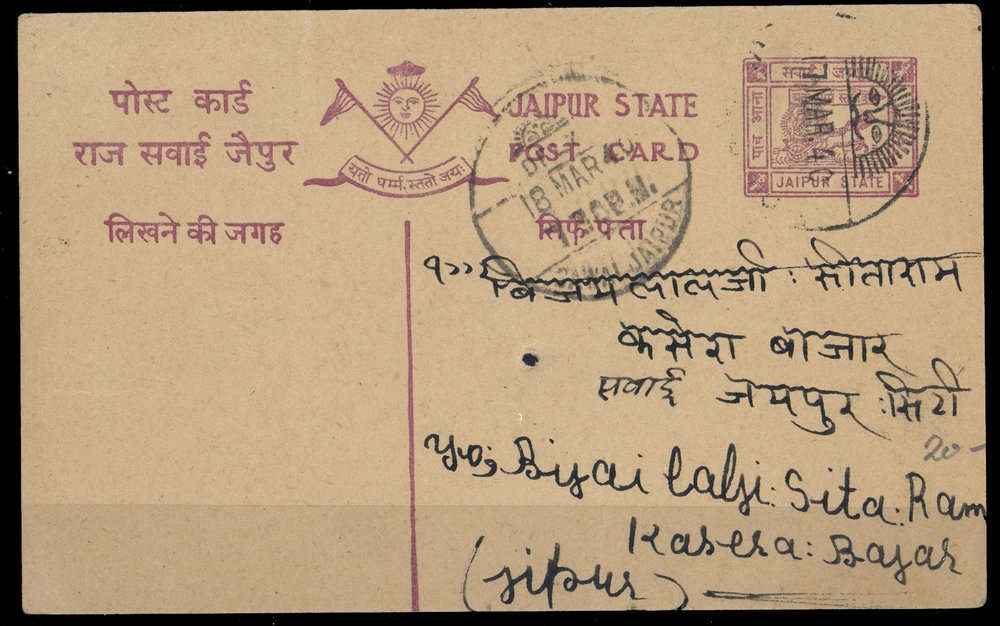 पोस्ट कार्ड
राज सवाई जैपुर
यतो धर्म्म स्ततो जयः
JAIPUR STATE
POST CARD
लिखने की जगह
सिर्फ पत्ता
सवाई
पाच आना
JAIPUR STATE
17 MAR 4
18 MAR 49
P.M.
SAWAI JAIPUR
बिजयलालजी : सीताराम
कसेरा बाजार
सवाई जयपुर : सिटी
20-
Bijai lalji : Sita : Ram
Kasera : Bajar
(jipur)